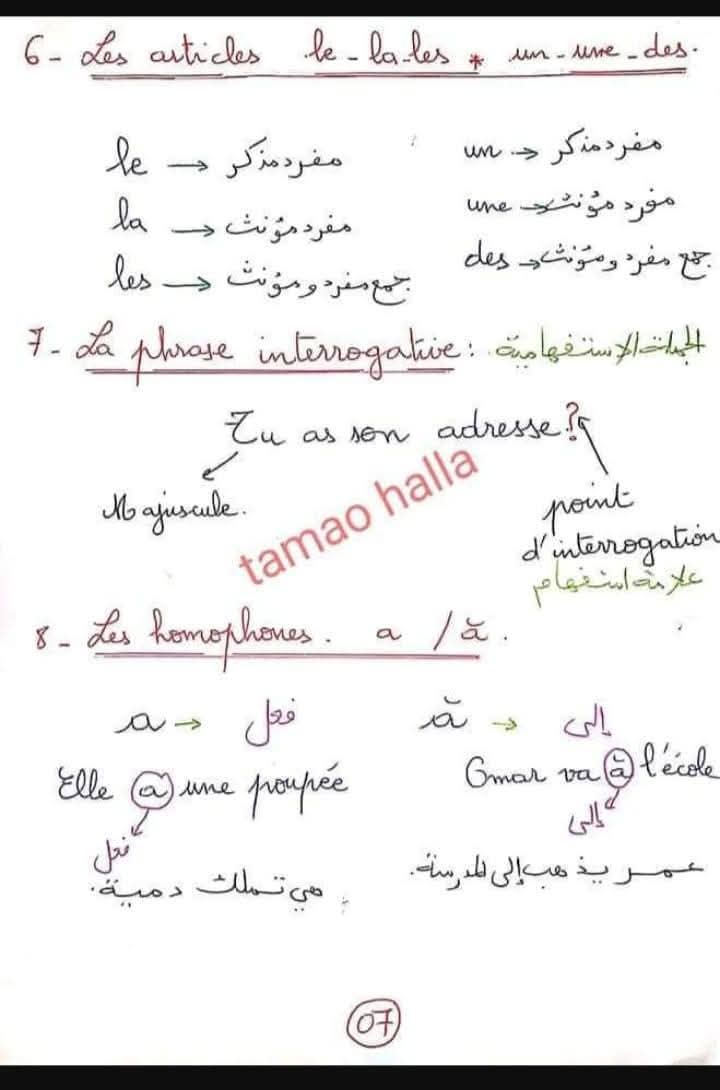 6 - Les articles le - la - les * un - une - des.
le → مفرد مذكر
un → مفرد مذكر
la → مفرد مؤنث
une → مفرد مؤنث
les → جمع مفرد ومؤنث
des → جمع مفرد ومؤنث
7 - La phrase interrogative : الجملة الاستفهامية
Tu as son adresse ?
Majuscule.
point
d'interrogation
علامة استفهام
tamao halla
8 - Les homophones. a / à.
a → فعل
à → إلى
Elle a une poupée
Omar va à l'école
فعل
إلى
هي تملك دمية.
عمر يذهب إلى المدرسة.
07